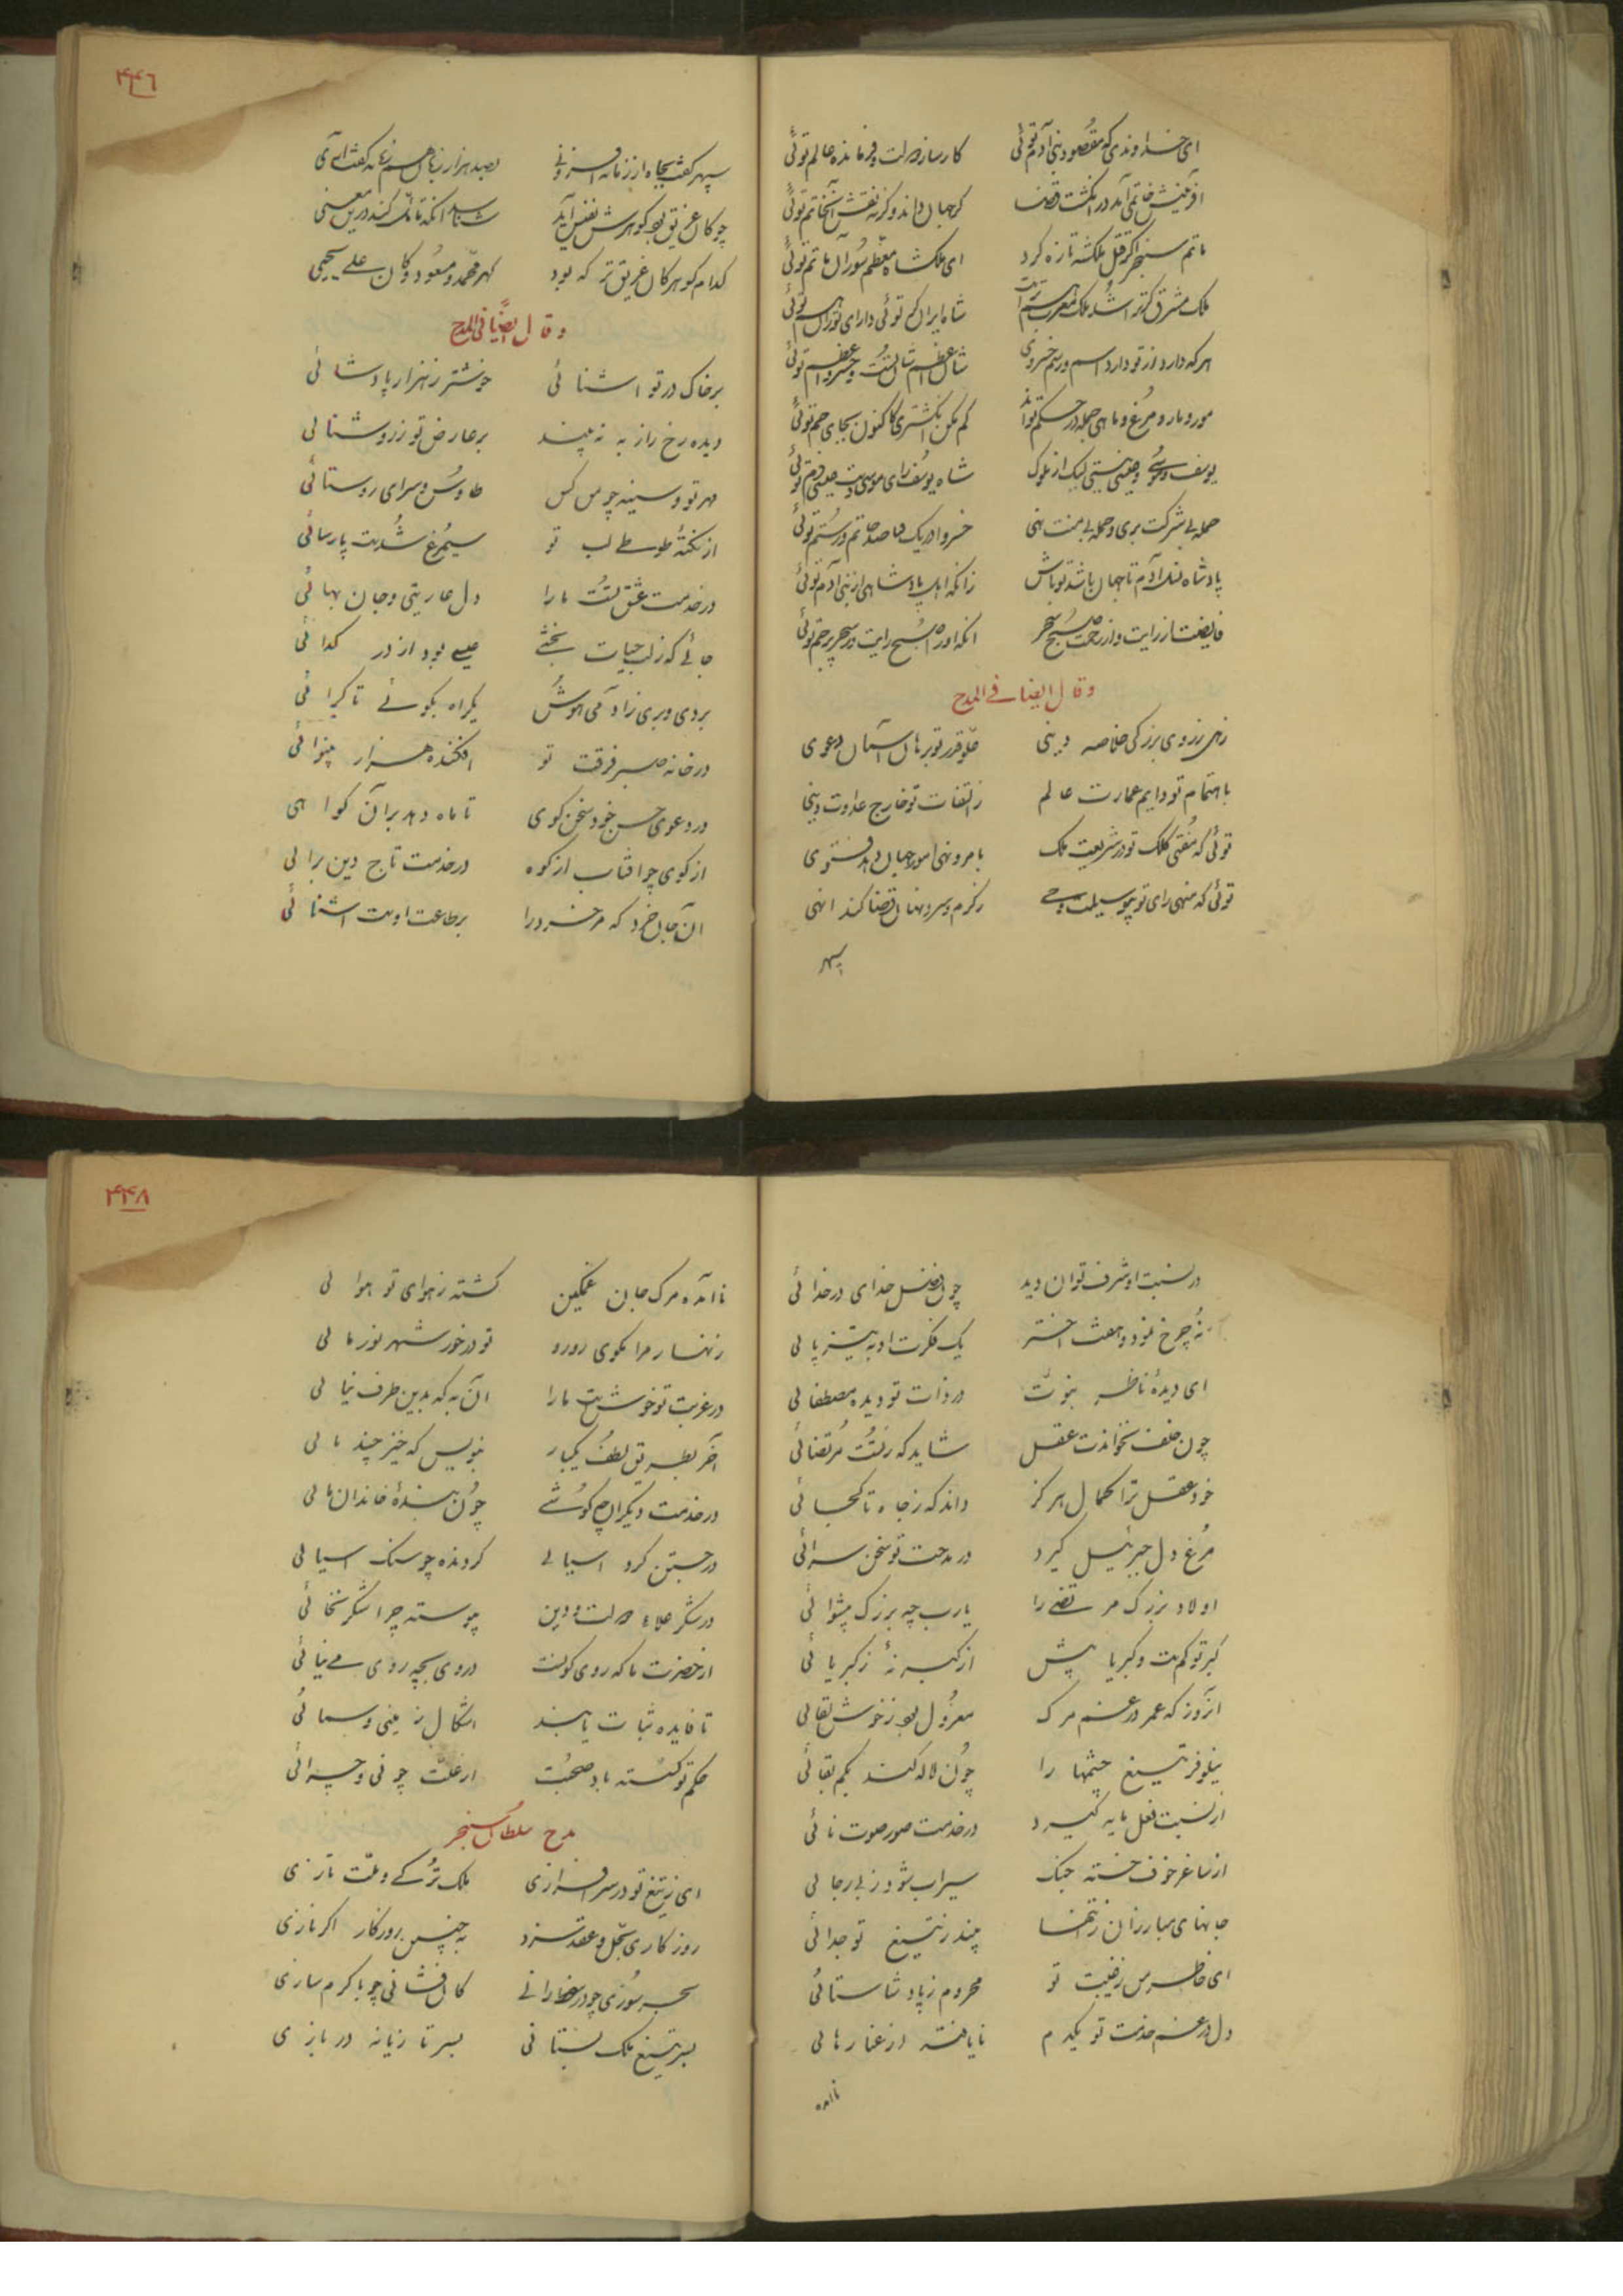 ای خداوندی که مقصود بنی آدم توئی کارساز دولت و فرمانده عالم توئی
آفرینش خاتمی آمد در انگشت قضا گر جهان داند وگرنه نقش آن خاتم توئی
ماتم سنجر اگر قتل ملکشه تازه کرد ای ملکشاه معظم سور آن ماتم توئی
ملک مشرق گر ترا شد ملک مغرب هم تراست شاه ایران گر توئی دارای توران هم توئی
هرکه دارد از تو دارد اسم و رسم خسروی شاه اعظم شان تست و خسرو اعظم توئی
مور و مار و مرغ و ماهی جمله در حکم تواند کم مکن انگشتری کاکنون بجای جم توئی
یوسف و موسی و عیسی نیستی لیک از ملوک شاه یوسف رای موسی دست عیسی دم توئی
حمله بی شرکت بری و حمله بی منت نهی خسروا در یک قبا صد حاتم و رستم توئی
پادشاه نسل آدم تا جهان باشد تو باش زانکه اهل پادشاهی از بنی آدم توئی
وقال ایضا فی المدح
زهی ز روی بزرگی خلاصه دینی علو قدر تو برهان آسمان دعوی
باهتمام تو دایم عمارت عالم ز التفات تو خارج عداوت دنیا
توئی که مفتی کلک تو در شریعت ملک بامر و نهی امور جهان دهد فتوی
توئی که منهی رای تو بوسیلت وحی ز گرم و سرد نهان قضا کند انهی
سپهر
۴۴۶
سپهر گفت بجاه از زمانه افزونی بصد هزار زبان هم زمانه گفت آری
کدام گوهر کان غریق تر که بود گهر محمد و مسعود و کان علی یحیی
وقال ایضا فی المدح
بر خاک در تو آشنائی خوشتر ز هزار پادشائی
دیده رخ راز به نه بیند بر عارض تو ز روشنائی
مهر تو و سینه چو من کس طاوس و سرای روستائی
از نکته طوطی لب تو سیمرغ شدست پارسائی
در خدمت عشق تست ما را دل عاریتی و جان بهائی
جائی که ز لب حیات بخشی عیسی بود از در گدائی
بردی و بری ز آدمی هوش یکراه بگوئی تا کرائی
در خانه صبر فرقت تو افکنده هزار بینوائی
در دعوی حسن خود سخن گوی تا ماه دهد بر آن گواهی
از کوی چو آفتاب از کوه در خدمت تاج دین برائی
آن جان خرد که مر خرد را بر طاعت اوست آشنائی
در نسبت او شرف توان دید چون فضل خدای در خدائی
نه چرخ نمود و هفت اختر یک فکرت او به تیزپائی
ای دیده ناظر نبوت در ذات تو دیده مصطفائی
چون خلف نخواندت عقل شاید که ز تست مرتضائی
خود عقل ترا کمال هرگز داند که ز جاه تا کجائی
مرغ دل جبرئیل گیرد در مدحت تو سخن سرائی
اولاد بزرگ مرتضی را یارب چه بزرگ پیشوائی
کبر تو کمست و کبریا بیش از کبر نه ز کبریائی
آنروز که عمر در غم مرگ معزول بود ز خوش بقائی
نیلوفر تیغ چشمها را چون لاله کند بکم بقائی
از نسبت فعل مایه گیرد در خدمت صور صوت نائی
از ساغر خوف خسته جنگ سیراب شود ز بی رجائی
جانهای مبارزان ز تنها بیند ز تیغ تو جدائی
ای خاطر من ز غیبت تو محروم ز پادشا ستائی
دل در غم خدمت تو یکدم نایافته از عنا رهائی
ناآمده
۴۴۸
ناآمده مرگ جان غمگین گشته ز هوای تو هوائی
زنهار مرا مگوی رو رو تو در خور شهر نور مائی
در غربت تو خوش است ما را آن به که بدین طرف نیائی
آخر بطریق لطف یکبار بنویس که خیز چند مائی
در خدمت دیگران چه کوشی چون بنده خاندان مائی
در جستن گرد آسیائی گردنده چو سنگ آسیائی
در شکر علاء دولت و دین پیوسته چرا شکر نخائی
از حضرت ما که روی کونست در وی بچه روی می نیائی
تا فایده ثبات یابند اشکال زمینی و سمائی
حکم تو گسسته باد صحبت از علت چونی و چرائی
مدح سلطان سنجر
ای ز تیغ تو در سرافرازی ملک ترکی و ملت تازی
سحر سوزی چو در سخن رانی کان فشانی چو با کرم سازی
بسر تیغ ملک بستانی بسر تازیانه دربازی